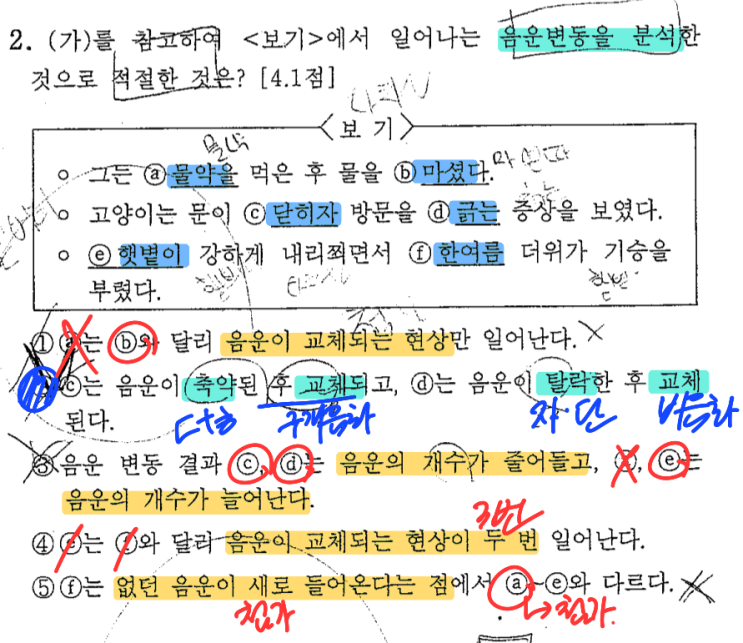 2. (가)를 참고하여 <보기>에서 일어나는 음운변동을 분석한
것으로 적절한 것은? [4.1점]
<보 기>
물냑
◦ 그는 ⓐ물약을 먹은 후 물을 ⓑ마셨다.
◦ 고양이는 문이 ⓒ닫히자 방문을 ⓓ긁는 증상을 보였다.
◦ ⓔ햇볕이 강하게 내리쬐면서 ⓕ한여름 더위가 기승을
부렸다.
① ⓐ는 ⓑ와 달리 음운이 교체되는 현상만 일어난다.
② ⓒ는 음운이 축약된 후 교체되고, ⓓ는 음운이 탈락한 후 교체
된다.
ㄷ+ㅎ 구개음화 자·단 비음화
③ 음운 변동 결과 ⓒ, ⓓ는 음운의 개수가 줄어들고, ⓐ, ⓔ는
음운의 개수가 늘어난다.
3번
④ ⓔ는 ⓕ와 달리 음운이 교체되는 현상이 두 번 일어난다.
⑤ ⓕ는 없던 음운이 새로 들어온다는 점에서 ⓐ~ⓔ와 다르다.
첨가 첨가